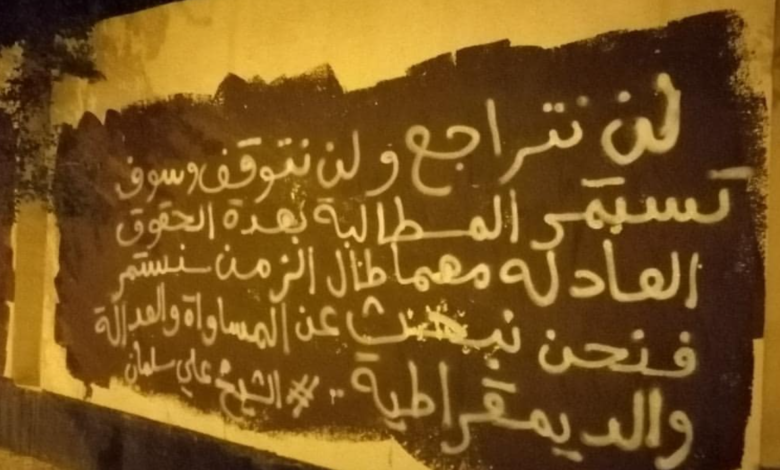 لن نتراجع ولن نتوقف وسوف
تستمر المطالبة بهدة الحقوق
العادله مهما طال الزمن سنستمر
فنحن نبحث عن المساواة والعدالة
والديمقراطية .. #الشيخ علي سلمان